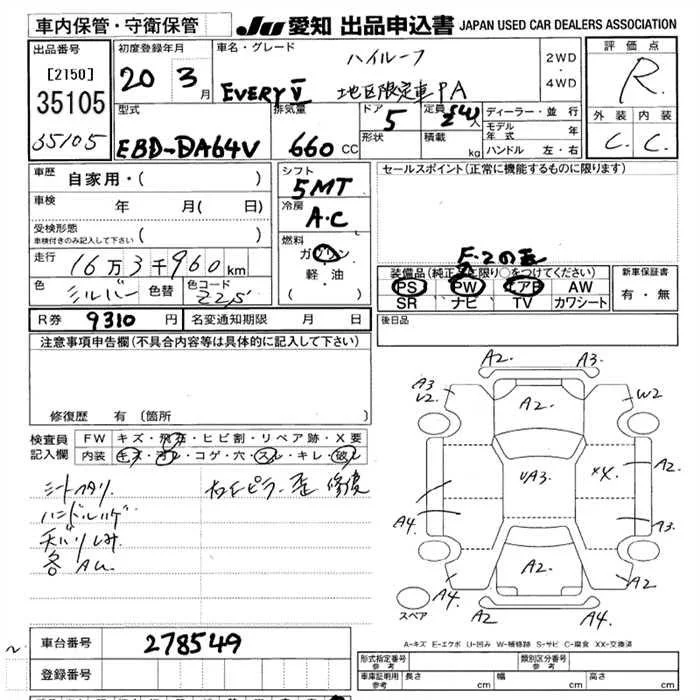 車内保管・守衛保管
JU 愛知 出品申込書 JAPAN USED CAR DEALERS ASSOCIATION
出品番号
[2150]
35105
35105
初度登録年月
20 3月
車名・グレード
ハイルーフ
EVERY V 地区限定車PA
2WD
4WD
評価点
R
外装 内装
C. C.
型式
EBD-DA64V
排気量
660 CC
ドア
5
形状
定員
人
積載
kg
ディーラー・並行
モデル年式 年
ハンドル 左・右
車歴 自家用・( )
車検 年 月( 日)
受検形態
車検付きのみ記入して下さい ( )
走行 16万3千960km
色 シルバー 色替 色コード Z2S
シフト
5MT
冷房
A.C
燃料
ガソリン
・
軽・油
( )
セールスポイント(正常に機能するものに限ります)
装備品(純正品に限り○をつけてください)
PS PW エアB AW
SR ナビ TV カワシート
新車保証書
有・無
R券 9310 円 名変通知期限 月 日
後日品
注意事項申告欄(不具合内容等は具体的に記入して下さい)
修復歴 有(箇所
検査員記入欄
FW キズ・飛石・ヒビ割・リペア跡・X要
内装 キズ・汚レ・コゲ・穴・スレ・キレ・破レ
シートヘタリ
ハンドルハゲ
天バリしみ
各AU.
A2. A3.
A3
U2.
A2.
W2
UA3.
XX.
A2.
A4.
A3.
A2.
A4.
A2
A2
A4.
スペア
A-キズ E-エクボ U-凹み W-補修跡 S-サビ C-腐食 XX-交換済
車台番号 278549
登録番号
形式指定番号 参考
類別区分番号 参考
車庫証明用 参考 長さ cm 幅 cm 高さ cm